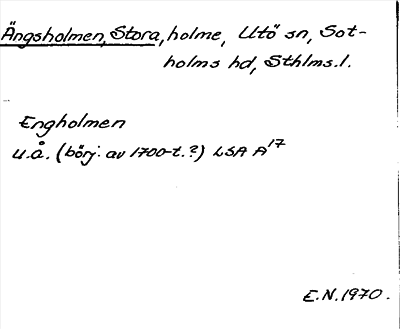 Ängsholmen, Stora, holme, Utö sn, Sot-
holms hd, Sthlms.l.
Engholmen
u.å. (börj: av 1700-t.?) LSA A¹⁷
E.N. 1970.